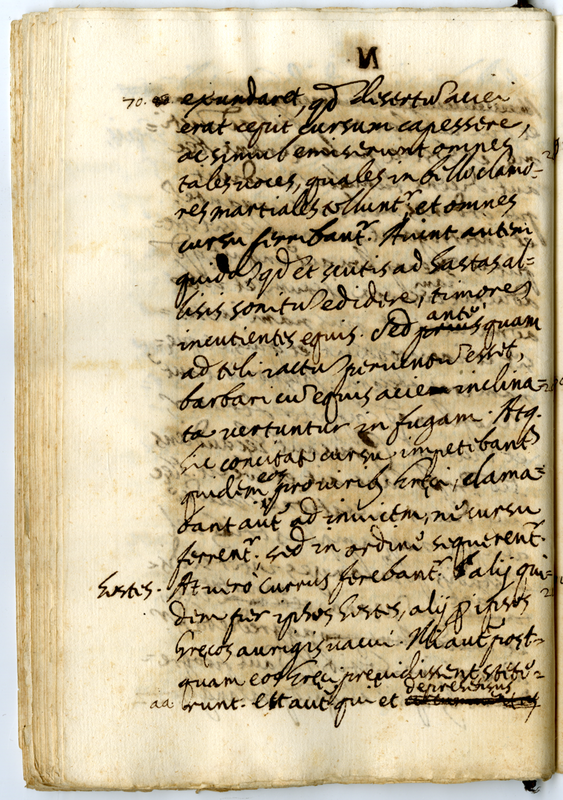 N
70. expundaret, qd desertu aciei
erat cepit cursum capessere,
ac simul emiserunt omnes
tales voces, quales in bello clamo=
res martiales tolluntr, et omnes
cursu ferebantr. Aiunt autem
quida qd et scutis ad hastas al=
lisis, sonitu edidere, timores
incutientes equis. Sed prius quam
ante
ad teli iactu perventu esset,
barbari cu equis aciem inclina=
ta vertuntur in fugam. Atq.
hic concitat cursu impetibant
quidem eos pro virib. Greci, clama=
bant aut ad invicem, ne cursu
ferrentr, sed in ordine sequerentr.
hostes. At vero currus ferebantr. alij qui=
dem per ipsos hostes, alij p ipsos
Grecos aurigis vacui. Hi aut post=
quam eos Greci previdissent stete=
runt. est aut qui et
deprehensus
aa